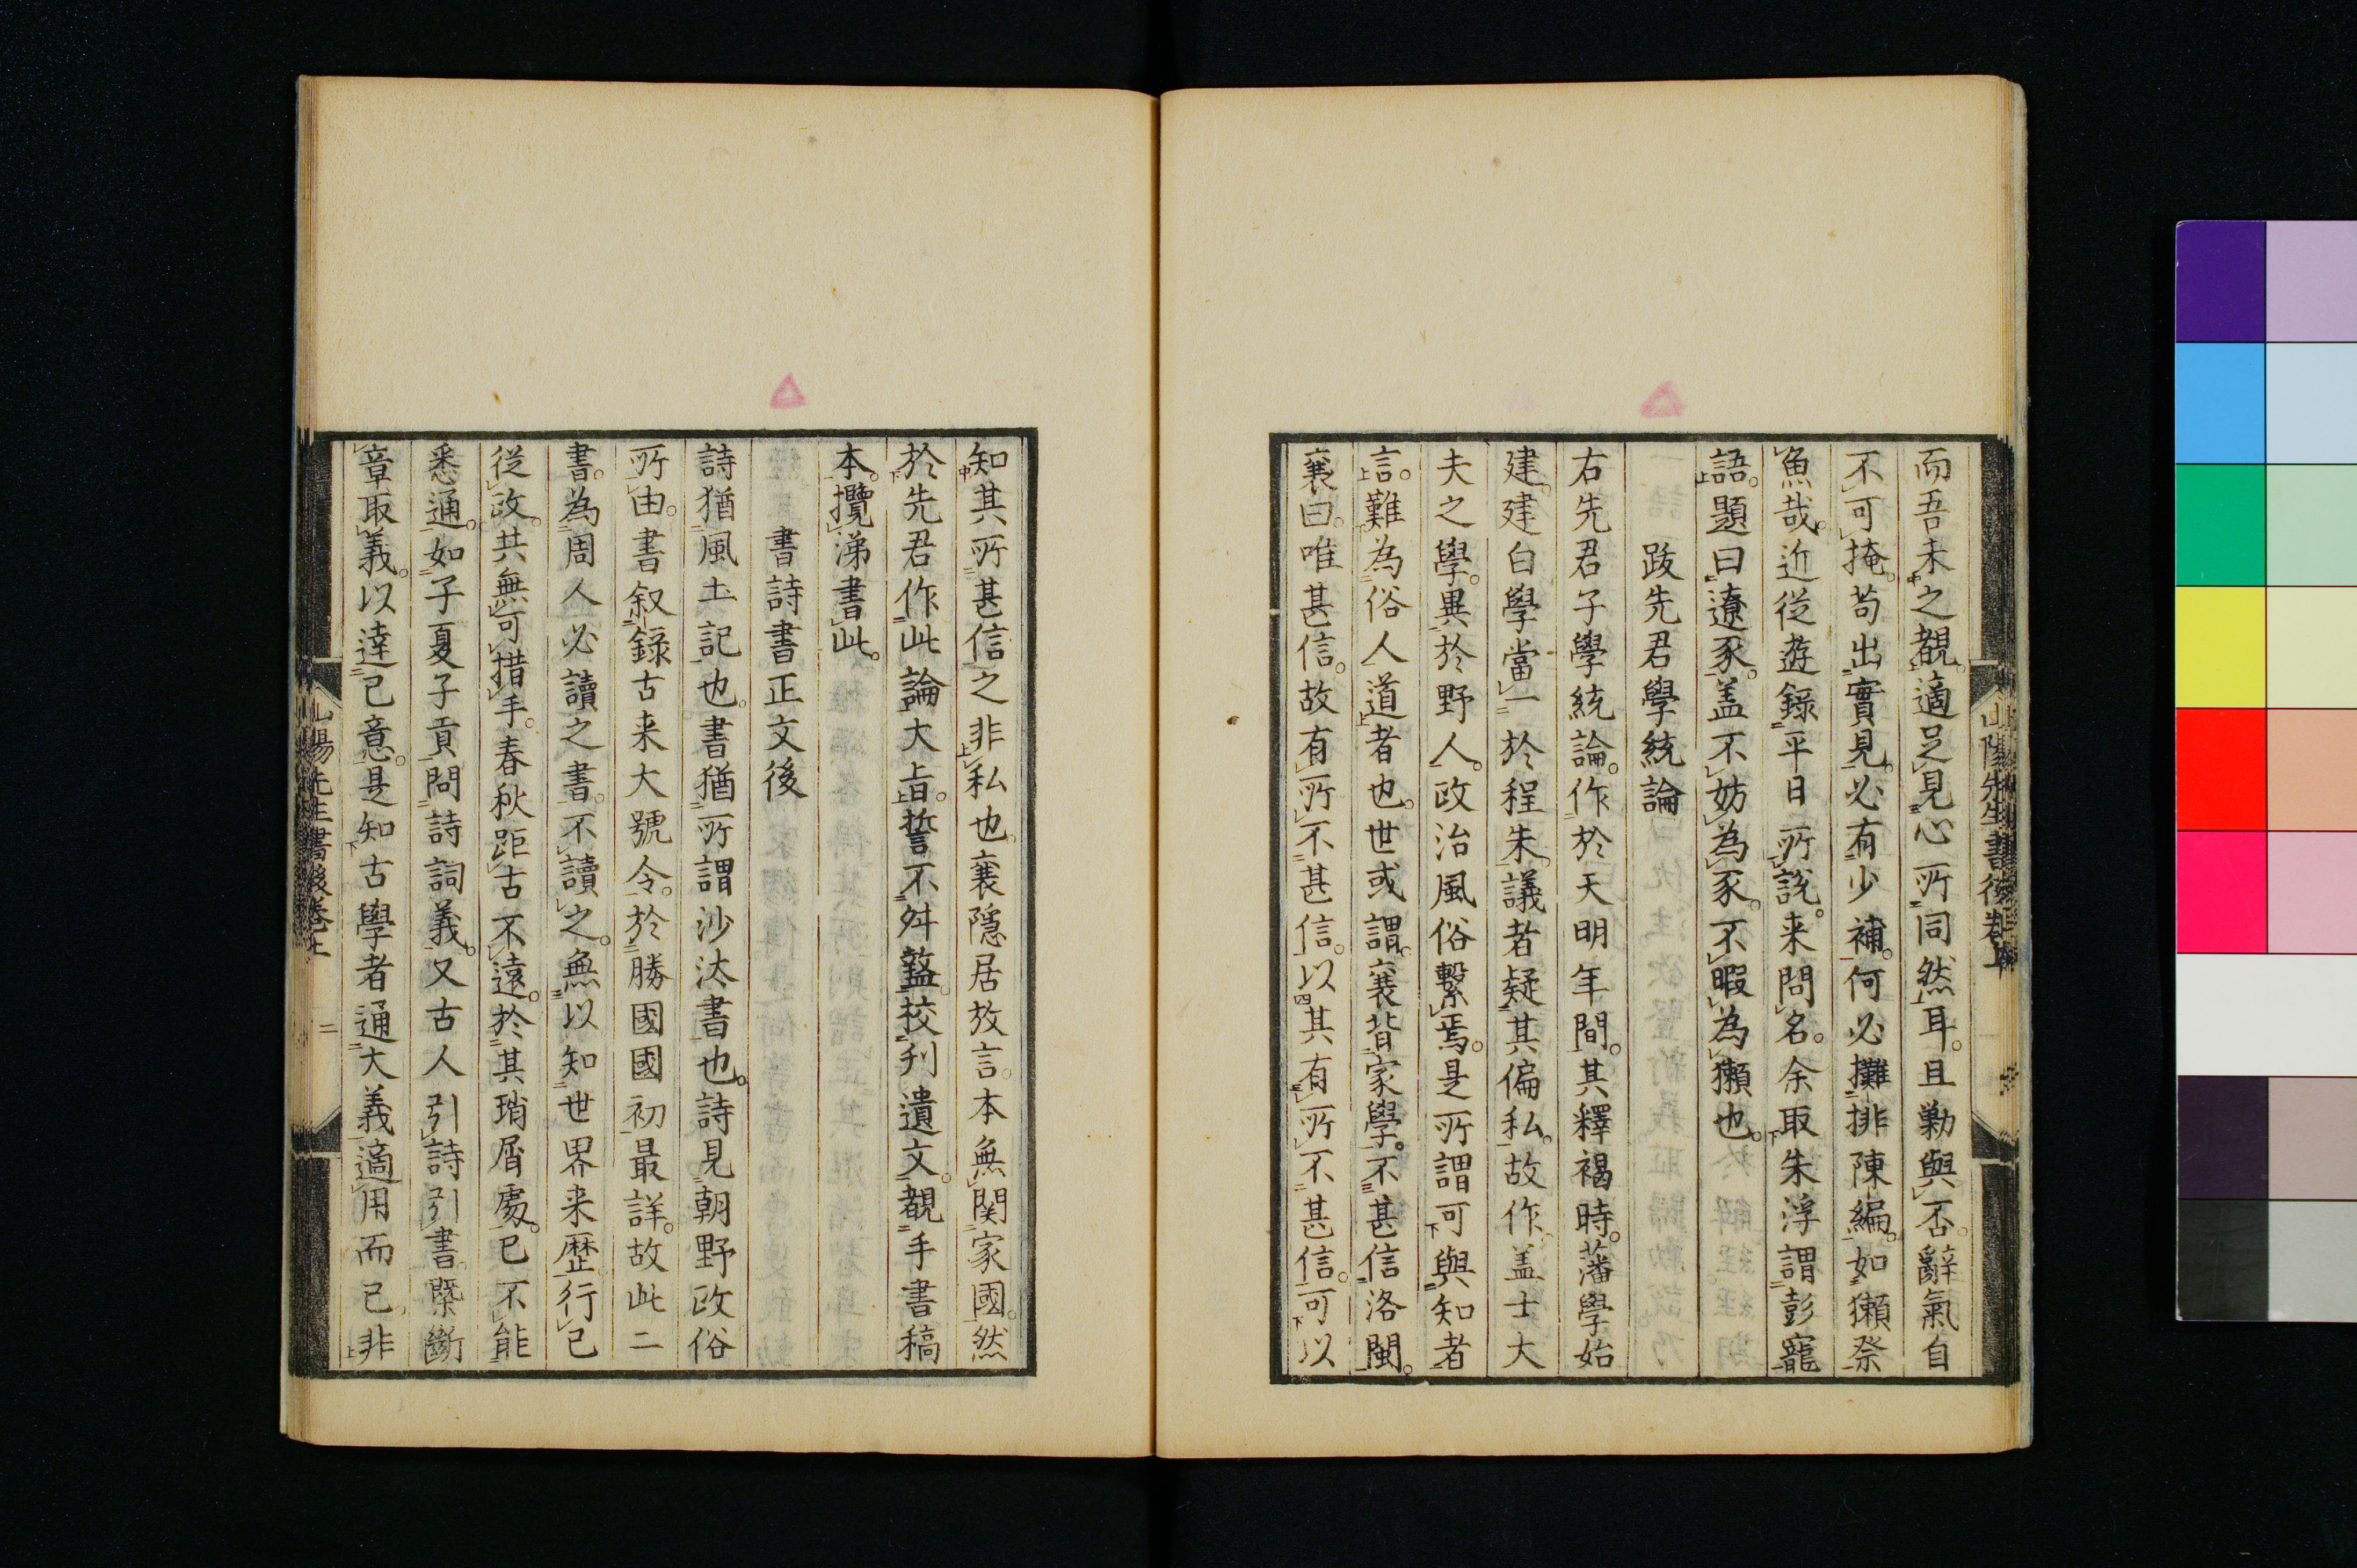 而吾未之覩。適足見心所同然耳。且勦與否。辭氣自
不可掩。苟出實見。必有少補。何必攤排陳編。如獺祭
魚哉。近從遊錄平日所說。来問名。余取朱浮謂彭寵
語。題曰遼豕。盖不妨為豕。不暇為獺也。
跋先君學統論
右先君子學統論。作於天明年間。其釋褐時。藩學始
建。建白學當一於程朱。議者疑其偏私。故作。盖士大
夫之學。異於野人。政治風俗繋焉。是所謂可與知者
言。難為俗人道者也。世或謂。襄背家學。不甚信洛閩。
襄曰。唯甚信。故有所不甚信。以其有所不甚信。可以
山陽先生書後卷上
知其所甚信之非私也。襄隱居放言。本無関家國。然
於先君作此論大旨。誓不舛盭。挍刋遺文。覩手書稿
本。攬涕書此。
書詩書正文後
詩猶風土記也。書猶所謂沙汰書也。詩見朝野政俗
所由。書叙錄古来大號令。於勝國國初最詳。故此二
書。為周人必讀之書。不讀之。無以知世界来歴。行己
從政。共無可措手。春秋距古不遠。於其瑣屑處。已不能
悉通。如子夏子貢。問詩詞義。又古人引詩引書。槩斷
章取義。以達己意。是知古學者通大義適用而已。非
山陽先生書後卷上
二